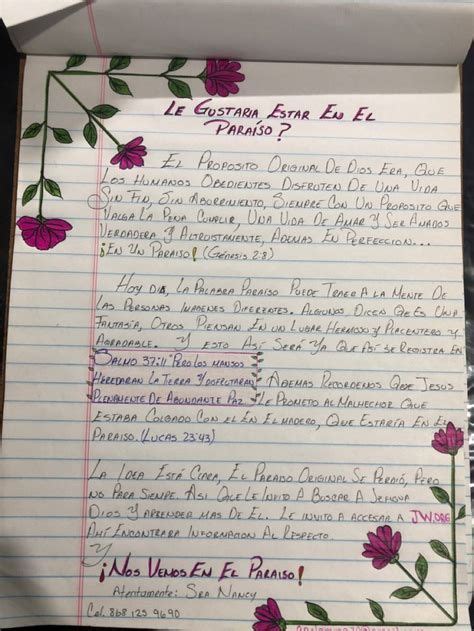 Le Gustaria Estar En El
Paraíso?
El Proposito Original De Dios Era, Que
Los Humanos Obedientes Disfruten De Una Vida
Sin Fin, Sin Aburrimiento, Siempre Con Un Proposito Que
Valga La Pena Cumplir, Una Vida De Amar Y Ser Amados
Verdadera Y Altruistamente, Ademas En Perfeccion...
¡En Un Paraiso! (Génesis 2:8)
Hoy Dia, La Palabra Paraiso Puede Traer A La Mente De
Las Personas Imagenes Diferentes. Algunos Dicen Que Es Una
Fantasía, Otros Piensan En Un Lugar Hermoso Y Placentero Y
Agradable. Y Esto Asi Será Ya Que Asi Se Registra En
Salmo 37:11 "Pero Los Mansos
Heredaran La Tierra Y Disfrutaran Ademas Recordemos Que Jesus
Plenamente De Abundante Paz Le Prometio Al Malhechor Que
Estaba Colgado Con el En El Madero, Que Estaría En El
Paraiso. (Lucas 23:43)
La Idea Está Clara, El Paraiso Original Se Perdió, Pero
No Para Siempre. Asi Que Le Invito A Buscar A Jehova
Dios Y Aprender Mas De El. Le Invito A Accesar A JW.ORG
Ahí Encontrara Informacion Al Respecto.
Y
¡Nos Vemos En El Paraiso!
Atentamente: Sra Nancy
Cel. 868 125 9690